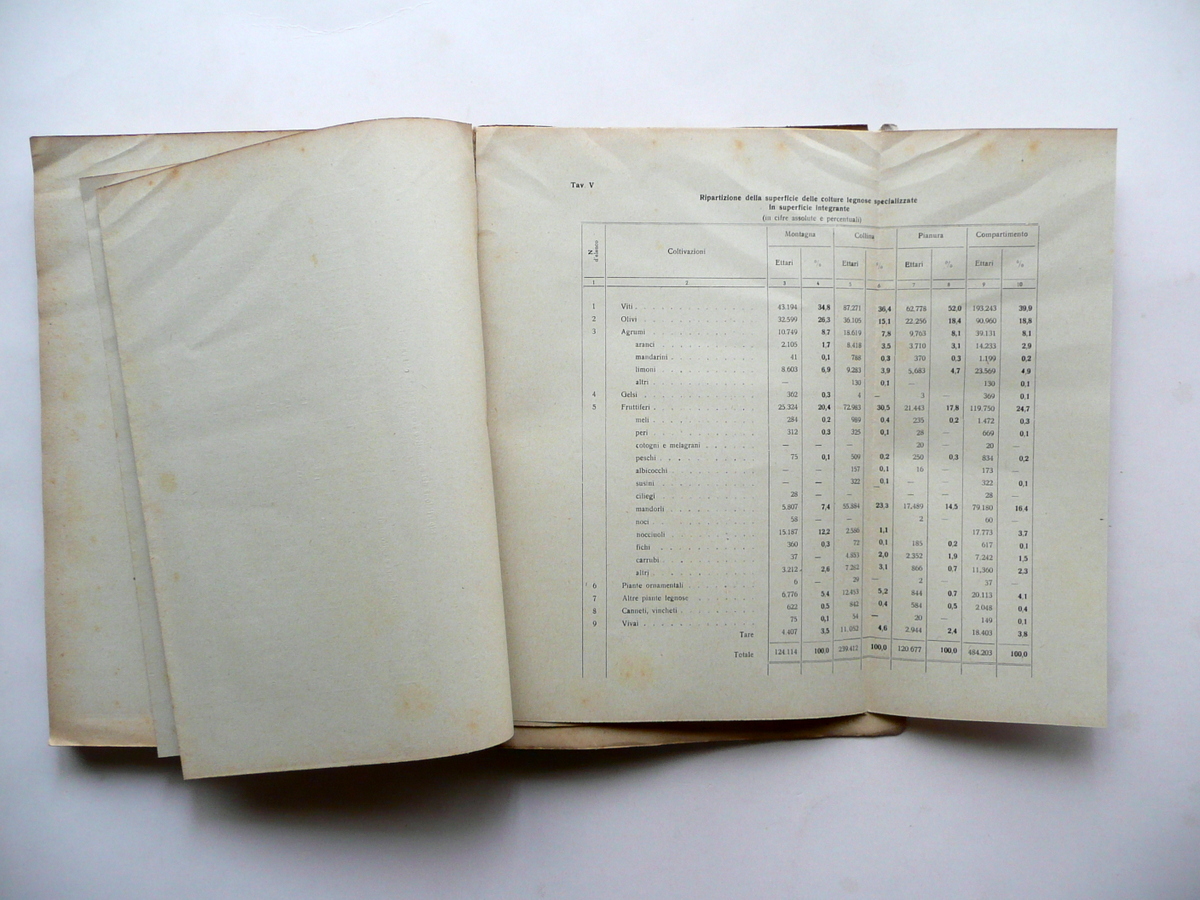 Tav. V
Ripartizione della superficie delle colture legnose specializzate
in superficie integrante
(in cifre assolute e percentuali)
N. d'elenco Coltivazioni Montagna Collina Pianura Compartimento
Ettari % Ettari % Ettari % Ettari %
1 2 3 4 5 6 7 8 9 10
1 Viti 43.194 34,8 87.271 36,4 62.778 52,0 193.243 39,9
2 Olivi 32.599 26,3 36.105 15,1 22.256 18,4 90.960 18,8
3 Agrumi 10.749 8,7 18.619 7,8 9.763 8,1 39.131 8,1
aranci 2.105 1,7 8.418 3,5 3.710 3,1 14.233 2,9
mandarini 41 0,1 788 0,3 370 0,3 1.199 0,2
limoni 8.603 6,9 9.283 3,9 5.683 4,7 23.569 4,9
altri — 130 0,1 — 130 0,1
4 Gelsi 362 0,3 4 — 3 — 369 0,1
5 Fruttiferi 25.324 20,4 72.983 30,5 21.443 17,8 119.750 24,7
meli 284 0,2 989 0,4 235 0,2 1.472 0,3
peri 312 0,3 325 0,1 28 — 669 0,1
cotogni e melagrani — — — — 20 — 20 —
peschi 75 0,1 509 0,2 250 0,3 834 0,2
albicocchi — — 157 0,1 16 — 173 —
susini — — 322 0,1 — — 322 0,1
ciliegi 28 — — — — — 28 —
mandorli 5.807 7,4 55.884 23,3 17.489 14,5 79.180 16,4
noci 58 — — — 2 — 60 —
noccioli 15.187 12,2 2.586 1,1 17.773 3,7
fichi 360 0,3 72 0,1 185 0,2 617 0,1
carrubi 37 — 4.853 2,0 2.352 1,9 7.242 1,5
altri 3.212 2,6 7.282 3,1 866 0,7 11.360 2,3
6 Piante ornamentali 6 — 29 — 2 — 37 —
7 Altre piante legnose 6.776 5,4 12.453 5,2 844 0,7 20.113 4,1
8 Canneti, vincheti 622 0,5 842 0,4 584 0,5 2.048 0,4
9 Vivai 75 0,1 54 — 20 — 149 0,1
Tare 4.407 3,5 11.052 4,6 2.944 2,4 18.403 3,8
Totale 124.114 100,0 239.412 100,0 120.677 100,0 484.203 100,0